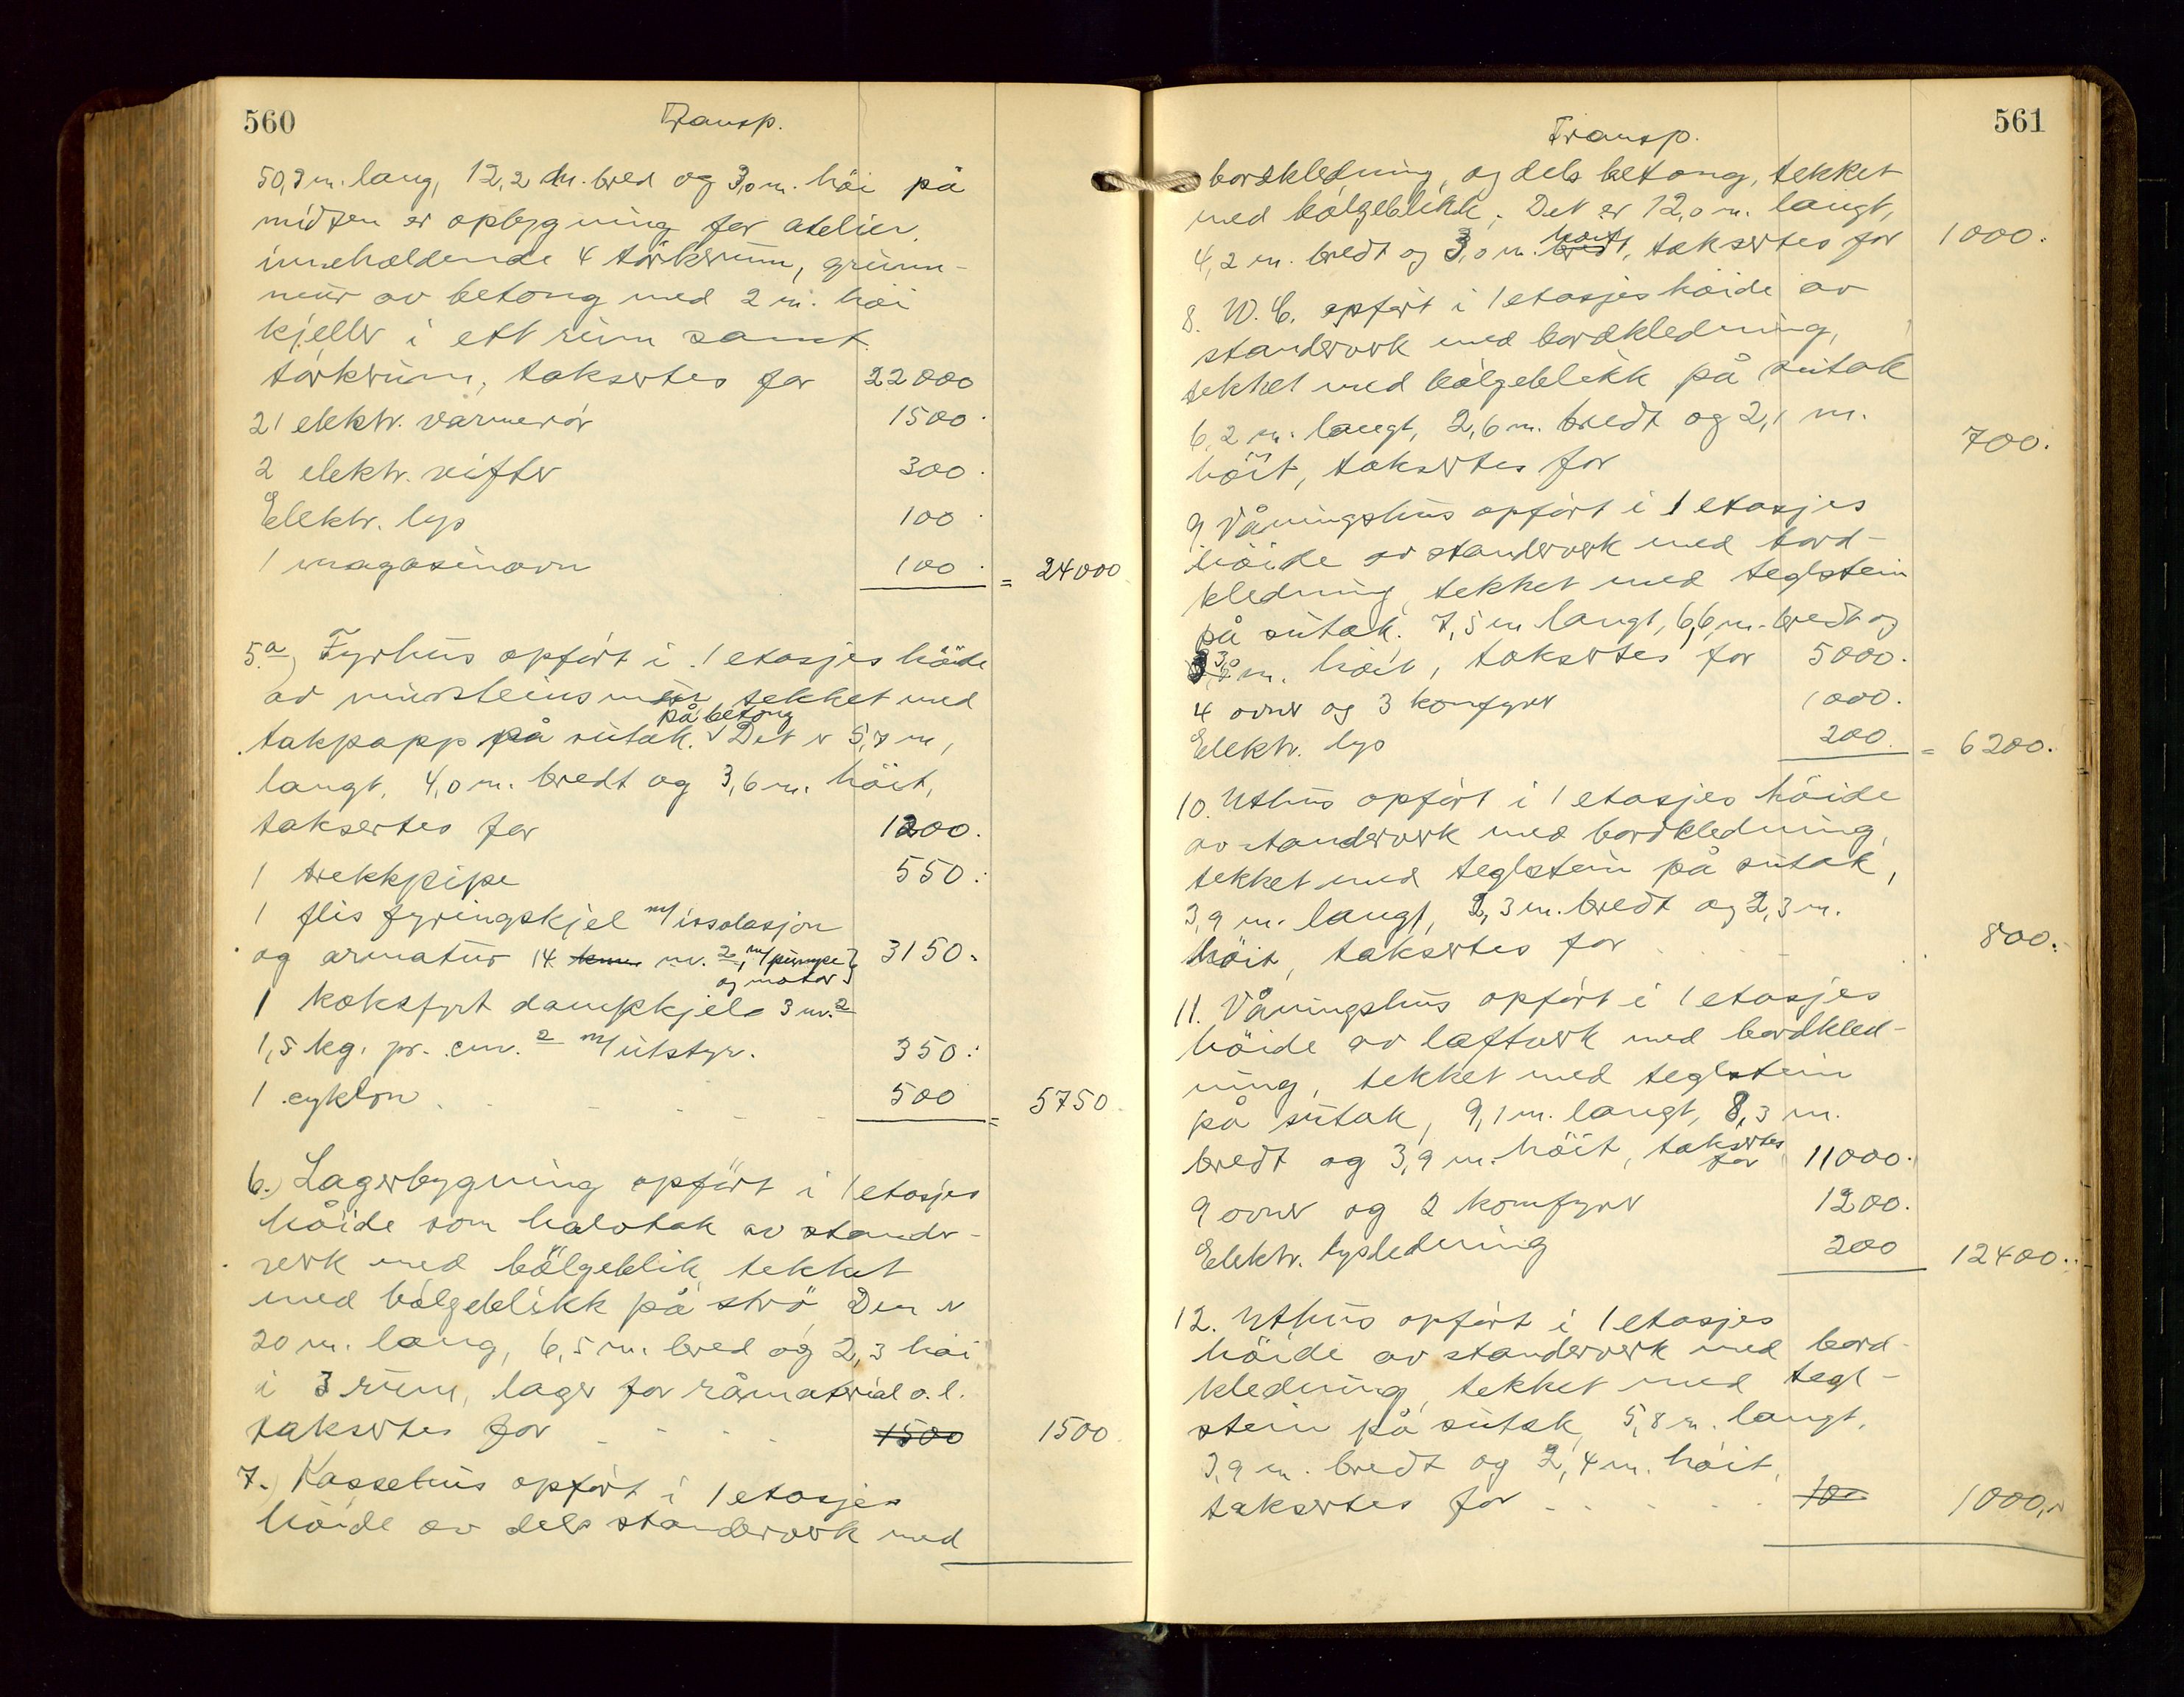 560
Transp.
50,7 m. lang, 12,2 m. bred og 3,0 m. höi på
midten er opbygning for atelier,
inneholdende 4 törkerum, grunn-
mur av betong med 2 m. höi
kjeller i ett rum samt
törkrum, taksertes for 22000
21 elektr. varmerör 1500.
2 elektr. vifter 300.
Elektr. lys 100.
1 magasinovn 100. = 24000
5.a) Fyrhus opfört i 1 etasjes höide
av mursteinsmur, tekket med
takpapp på sutak. på betong Det er 5,7 m,
langt, 4,0 m. bredt og 3,6 m. höit,
taksertes for 1200.
1 trekkpipe 550.
1 flis fyringskjel m/ issolasjon
og armatur 14 m.2, m/ pumpe og motor 3150.
1 koksfyrt dampkjele 3 m.2
1,5 kg. pr. cm.2 m/ utstyr. 350.
1 cyklon 500 = 5750.
6.) Lagerbygning opfört i 1 etasjes
höide som halvtak av stender-
verk med bölgeblik, tekket
med bölgeblikk på strö, Den er
20 m. lang, 6,5 m. bred og 2,3 höi
i 3 rum, lager for råmaterial o.l.
taksertes for 1500 1500.
7.) Kassehus opfört i 1 etasjes
höide av dels stenderverk med
561
Transp.
bordkledning, og dels betong, tekket
med bölgeblikk. Det er 12,0 m. langt,
4,2 m. bredt og 3,0 m. bredt höit, taksertes for 1000.
8. W. C. opfört i 1 etasjes höide av
stenderverk med bordkledning,
tekket med bölgeblikk på sutak
6,2 m. langt, 2,6 m. bredt og 2,1 m.
höit, taksertes for 700.
9 Våningshus opfört i 1 etasjes
höide av stenderverk med bord-
kledning, tekket med teglstein
på sutak. 7,5 m langt, 6,6 m. bredt og
m. höit, taksertes for 5000.
4 ovner og 3 komfyrer 1000.
Elektr. lys 200. = 6200.
10. Uthus opfört i 1 etasjes höide
av stenderverk med bordkledning,
tekket med teglstein på sutak,
3,9 m. langt, 2,3 m. bredt og 2,3 m.
höit, taksertes for 800.
11. Våningshus opfört i 1 etasjes
höide av lafteverk med bordkled-
ning, tekket med teglstein
på sutak, 9,1 m. langt, 8,3 m.
bredt og 3,9 m. höit, taksertes for 11000.
9 ovner og 2 komfyrer 1200.
Elektr. lysledning 200 12400.
12. Uthus opfört i 1 etasjes
höide av stenderverk med bord-
kledning, tekket med tegl-
stein på sutak, 5,8 m. langt,
3,9 m. bredt og 2,4 m. höit,
taksertes for 100 1000,